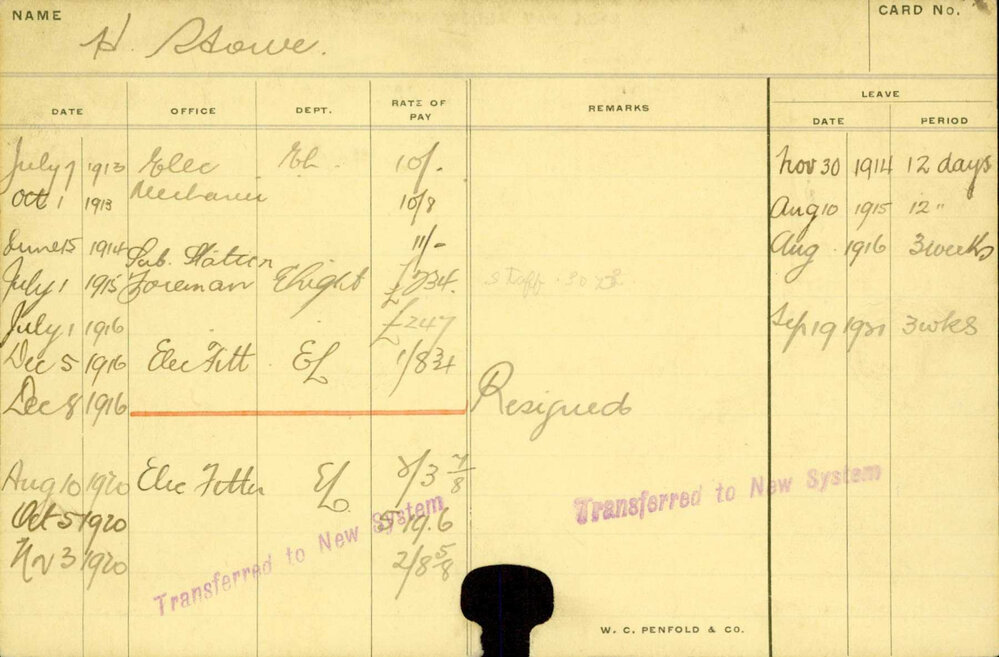 NAME H. Stowe. CARD NO.
LEAVE
DATE OFFICE DEPT. RATE OF PAY REMARKS DATE PERIOD
July 7 1913 Elec El. 10/- Nov 30 1914 12 days
Oct 1 1913 Mechanic 10/8 Aug 10 1915 12 "
June 15 1914 11/- Aug 1916 3 weeks
Sub. Station
July 1 1915 Foreman £234. Staff
July 1 1916 £247 Sep 19 1921 3 wks
Dec 5 1916 Elec Fitt EL 1/8 3/4
Dec 8 1916 Resigned
Aug 10 1920 Elec Fitter EL 2/3 7/8
Transferred to New System
Oct 5 1920 5 19. 6
Transferred to New System
Nov 3 1920 2/8 5/8
W. C. PENFOLD & CO.